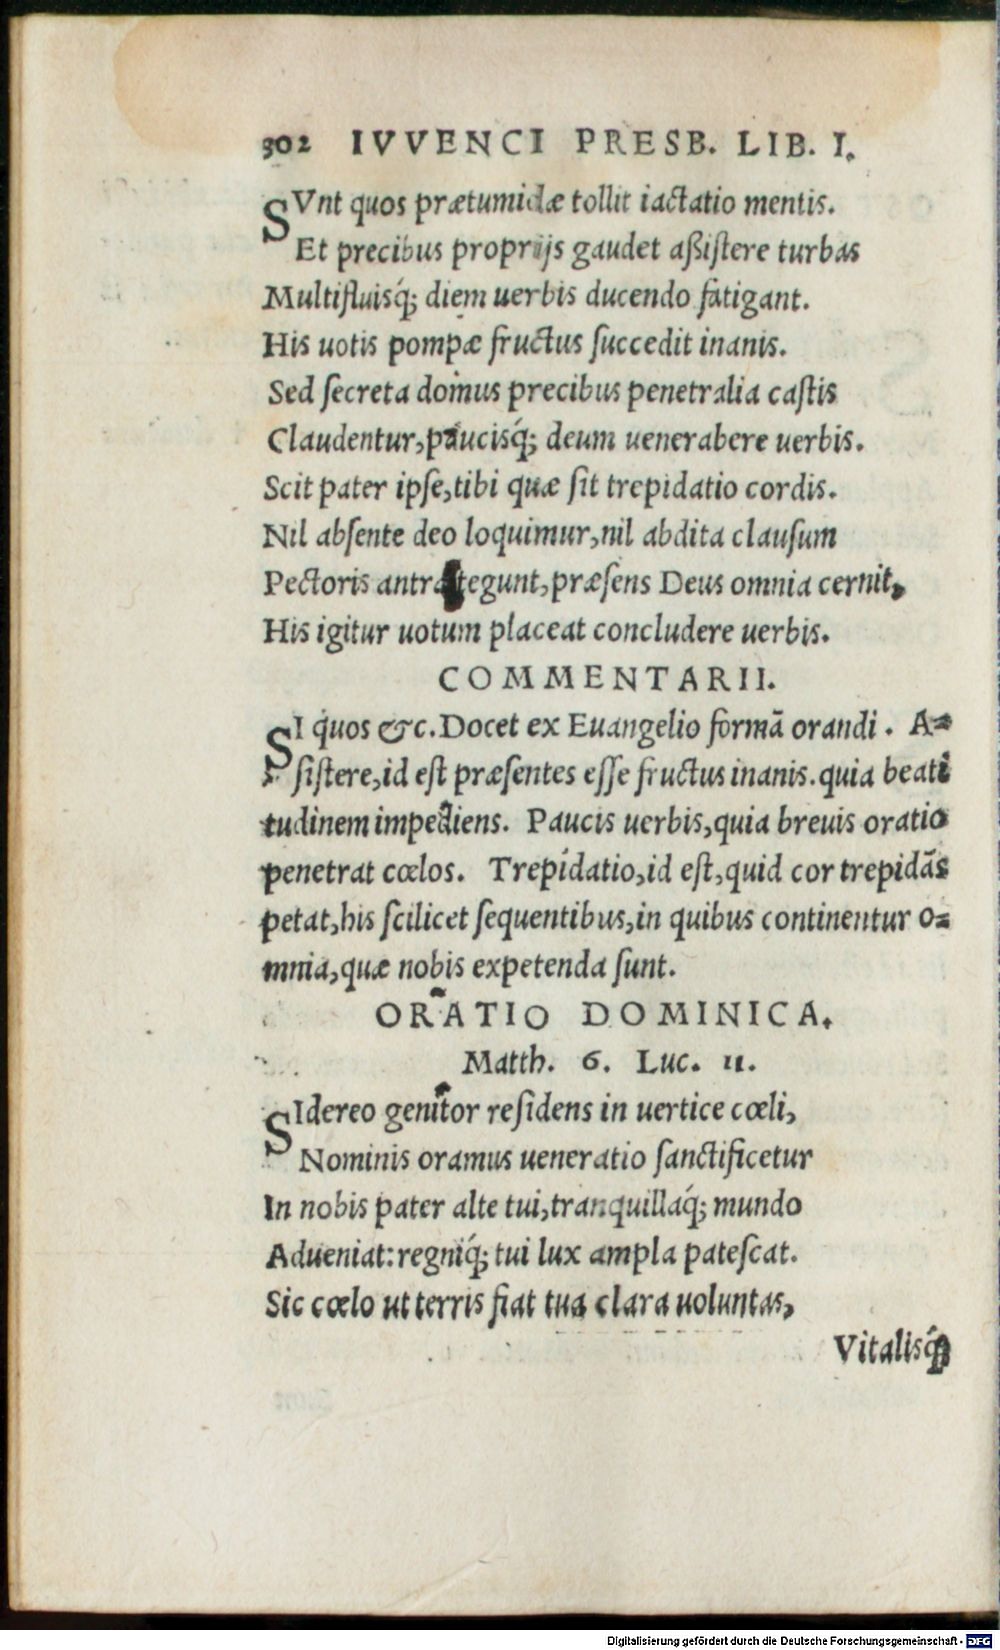 302 IVVENCI PRESB. LIB. I.
SVnt quos prætumidæ tollit iactatio mentis.
Et precibus proprijs gaudet aßiſtere turbas
Multifluisq́; diem uerbis ducendo fatigant.
His uotis pompæ fructus ſuccedit inanis.
Sed ſecreta domus precibus penetralia caſtis
Claudentur, paucisq́; deum uenerabere uerbis.
Scit pater ipſe, tibi quæ ſit trepidatio cordis.
Nil abſente deo loquimur, nil abdita clauſum
Pectoris antra tegunt, præſens Deus omnia cernit,
His igitur uotum placeat concludere uerbis.
COMMENTARII.
SI quos &c. Docet ex Euangelio formā orandi. A=
ſiſtere, id eſt præſentes eſſe fructus inanis. quia beati
tudinem impediens. Paucis uerbis, quia breuis oratio
penetrat cœlos. Trepidatio, id eſt, quid cor trepidās
petat, his ſcilicet ſequentibus, in quibus continentur o=
mnia, quæ nobis expetenda ſunt.
ORATIO DOMINICA.
Matth. 6. Luc. 11.
SIdereo genitor reſidens in uertice cœli,
Nominis oramus ueneratio ſanctificetur
In nobis pater alte tui, tranquillaq́; mundo
Adueniat: regniq́; tui lux ampla pateſcat.
Sic cœlo ut terris fiat tua clara uoluntas,
Vitalisq́;
Digitalisierung gefördert durch die Deutsche Forschungsgemeinschaft - DFG